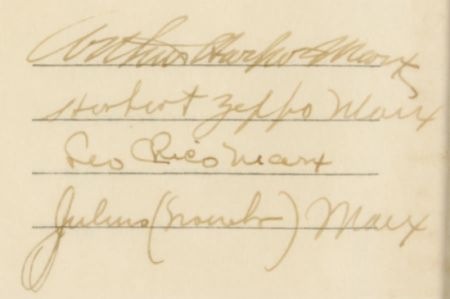 Arthur Harpo Marx
Herbert Zeppo Marx
Leo Chico Marx
Julius (Groucho) Marx